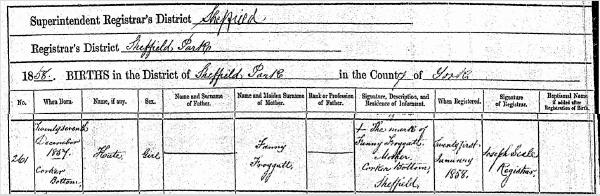 Superintendent Registrar's District Sheffield
Registrar's District Sheffield Park
1858. BIRTHS in the District of Sheffield Park in the County of York
No. When Born. Name, if any. Sex. Name and Surname of Father. Name and Maiden Surname of Mother. Rank or Profession of Father. Signature, Description, and Residence of Informant. When Registered. Signature of Registrar. Baptismal Name if added after Registration of Birth.
261 Twenty seventh December 1857. Corker Bottom. Girl Fanny Froggatt. + The mark of Fanny Froggatt. Mother Corker Bottom, Sheffield. Twenty first January 1858. Joseph Registrar.